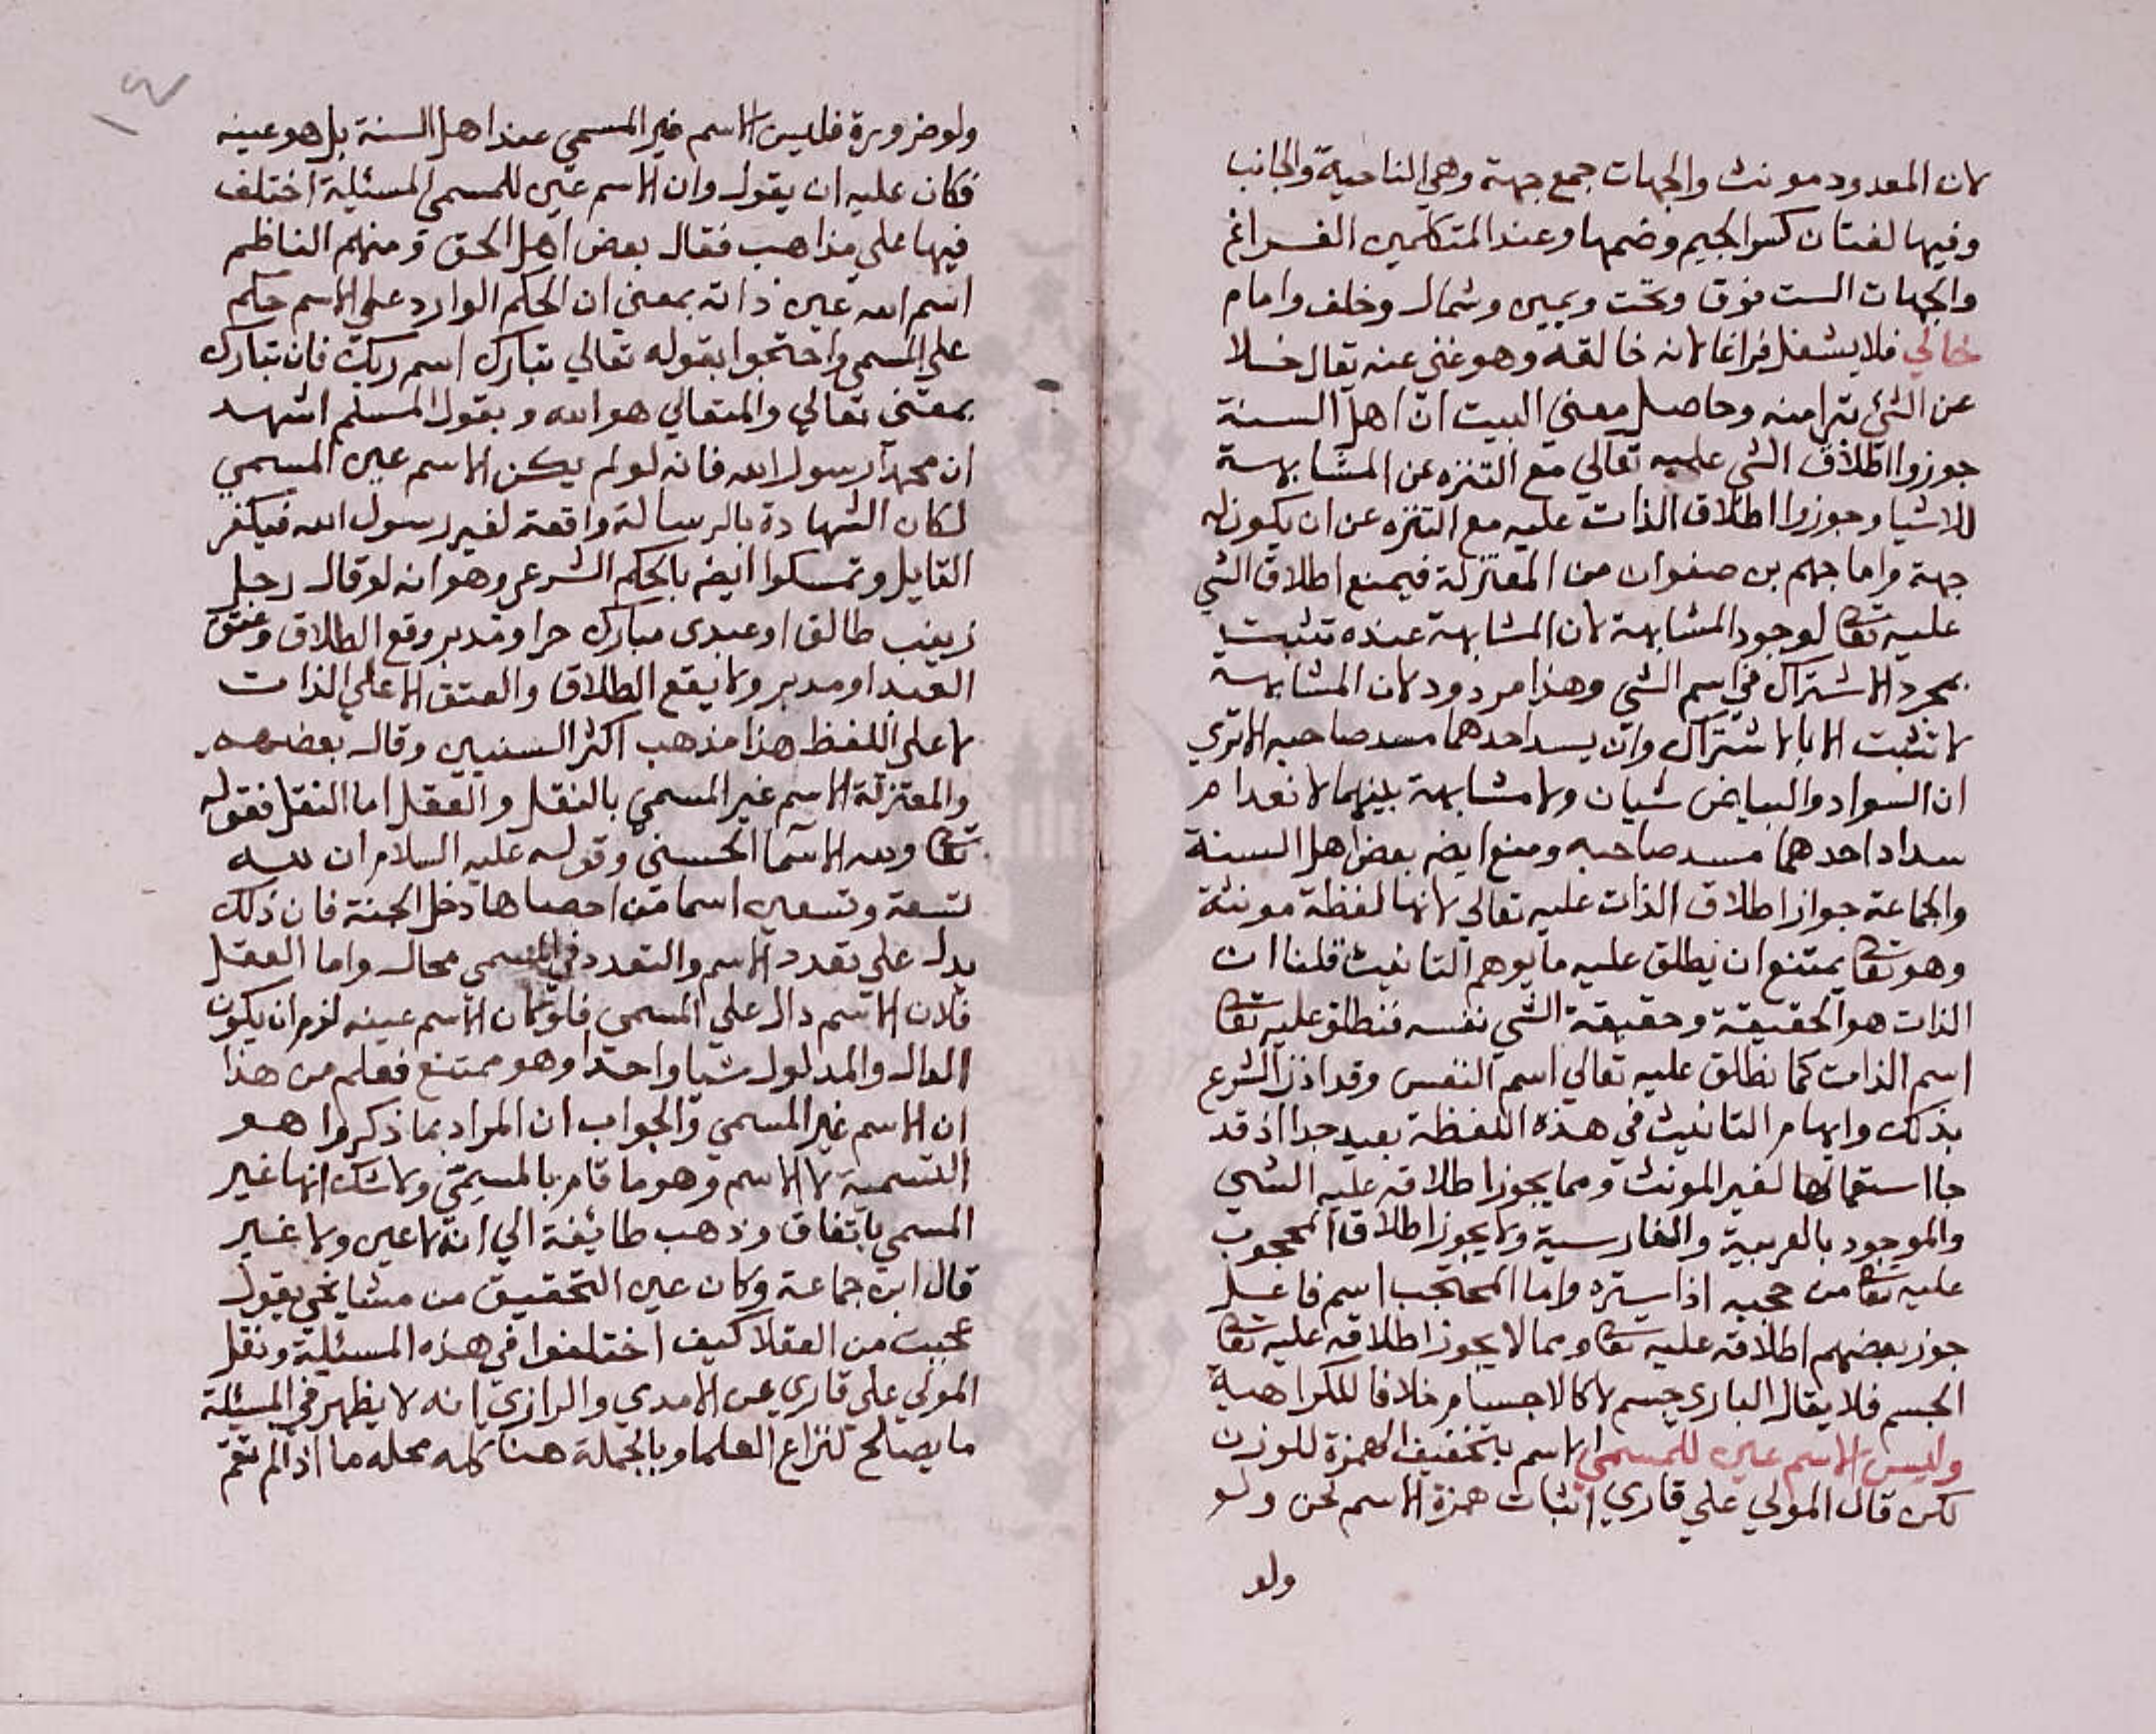 لان المعدود مونث والجهات جمع جهة وهي الناحية والجانب
وفيها لغتان كسر الجيم وضمها وعند المتكلمين الفراغ
والجهات الست فوق وتحت ويمين وشمال وخلف وامام
خالي فلا يشغل فراغا لانه خالقه وهو غني عنه يقال خلا
عن الشئ تبرا منه وحاصل معني البيت ان اهل السنة
جوزوا اطلاق الشي عليه تعالي مع التنزه عن المشابهة
للاشيا وجوزوا اطلاق الذات عليه مع التنزه عن ان يكون له
جهة واما جهم بن صفوان من المعتزلة فيمنع اطلاق الشي
عليه تعا لوجود المشابهة لان المشابهة عنده تثبت
بمجرد الاشتراك في اسم الشي وهذا مردود لان المشابهة
لا تثبت الا بالاشتراك وان يسد احدهما مسد صاحبه الا تري
ان السواد والبياض شيان ولا مشابهة بينهما لانعدام
سداد احدهما مسد صاحبه ومنع ايضه بعض اهل السنة
والجماعة جواز اطلاق الذات عليه تعالي لانها لفظة مونثة
وهو تعا يمتنع ان يطلق عليه ما يوهم التانيث قلنا ان
الذات هو الحقيقة وحقيقة الشي نفسه فنطلق عليه تعا
اسم الذات كما نطلق عليه تعالي اسم النفس وقد اذن الشرع
بذلك وايهام التانيث في هذه اللفظة بعيد جدا اذ قد
جا استعمالها لغير المونث ومما يجوز اطلاقه عليه الشي
والموجود بالعربية والفارسية ولا يجوز اطلاق المحجوب
عليه تعا من حجبه اذا ستره واما المحتجب اسم فاعل
جوز بعضهم اطلاقه عليه تعا ومما لا يجوز اطلاقه عليه تعا
الجسم فلا يقال الباري جسم لا كالاجسام خلافا للكراهية
وليس الاسم غير للمسمي الاسم بتخفيف الهمزة للوزن
لكن قال المولي علي قاري اثبات همزة الاسم لحن ولو
ولو
ولو ضرورة فليس الاسم غير المسمي عند اهل السنة بل هو عينه
فكان عليه ان يقول وان الاسم عين للمسمي المسئلة اختلف
فيها علي مذاهب فقال بعض اهل الحق ومنهم الناظم
اسم الله عين ذاته بمعني ان الحكم الوارد علي الاسم حكم
علي المسمي واحتجوا بقوله تعالي تبارك اسم ربك فان تبارك
بمعني تعالي والمتعالي هو الله وبقول المسلم اشهد
ان محمدا رسول الله فانه لو لم يكن الاسم عين المسمي
لكان الشهادة بالرسالة واقعة لغير رسول الله فيكفر
القايل وتمسكوا ايضه بالحكم الشرعي وهو انه لو قال رجل
زينب طالق او عبدي مبارك حر او مدبر وقع الطلاق وعتق
العبد او مدبر ولا يقع الطلاق والعتق الا علي الذات
لا علي اللفظ هذا مذهب اكثر السنيين وقال بعضهم
والمعتزلة الاسم غير المسمي بالنقل والعقل اما النقل فقوله
تعا ولله الاسما الحسني وقوله عليه السلام ان لله
تسعة وتسعين اسما من احصاها دخل الجنة فان ذلك
يدل علي تعدد الاسم والتعدد في المسمي محال واما العقل
فلان الاسم دال علي المسمي فلو كان الاسم عينه لزم ان يكون
الدال والمدلول شيا واحدا وهو ممتنع فعلم من هذا
ان الاسم غير المسمي والجواب ان المراد بما ذكروا هو
التسمية لا الاسم وهو ما قام بالمسمي ولا شك انها غير
المسمي باتفاق وذهب طائفة الي انه لا عين ولا غير
قال ابن جماعة وكان عين التحقيق من مشايخي يقول
عجبت من العقلا كيف اختلفوا في هذه المسئلة ونقل
المولي علي قاري عن الامدي والرازي انه لا يظهر في المسئلة
ما يصلح لنزاع العلما وبالجملة هنا كله محله ما اذا لم تقم